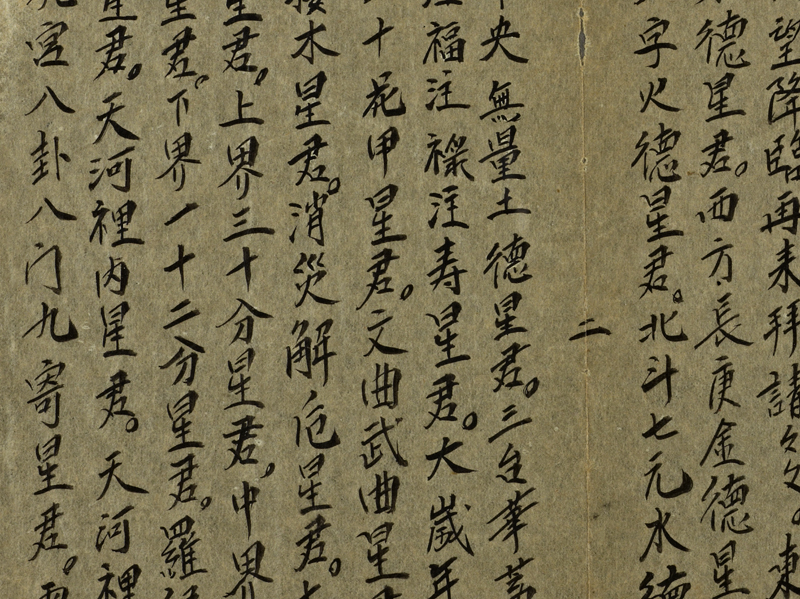 望降臨再来拜請々々。東
德星君。西方長庚金德星
字火德星君。北斗七元水德
二
央無量土德星君。三台華蓋
福注祿注寿星君。大歲年
十花甲星君。文曲武曲星君
木星君。消災解厄星君。
星君。上界三十分星君。中界
星君。下界一十二分星君。羅
星君。天河裡内星君。天河裡
宮八卦八门九寄星君。